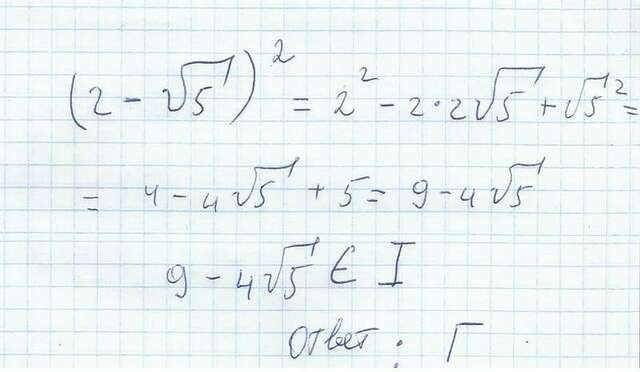 (2 - √5)² = 2² - 2·2√5 + √5² =
= 4 - 4√5 + 5 = 9 - 4√5
9 - 4√5 ∈ I
Ответ: Г